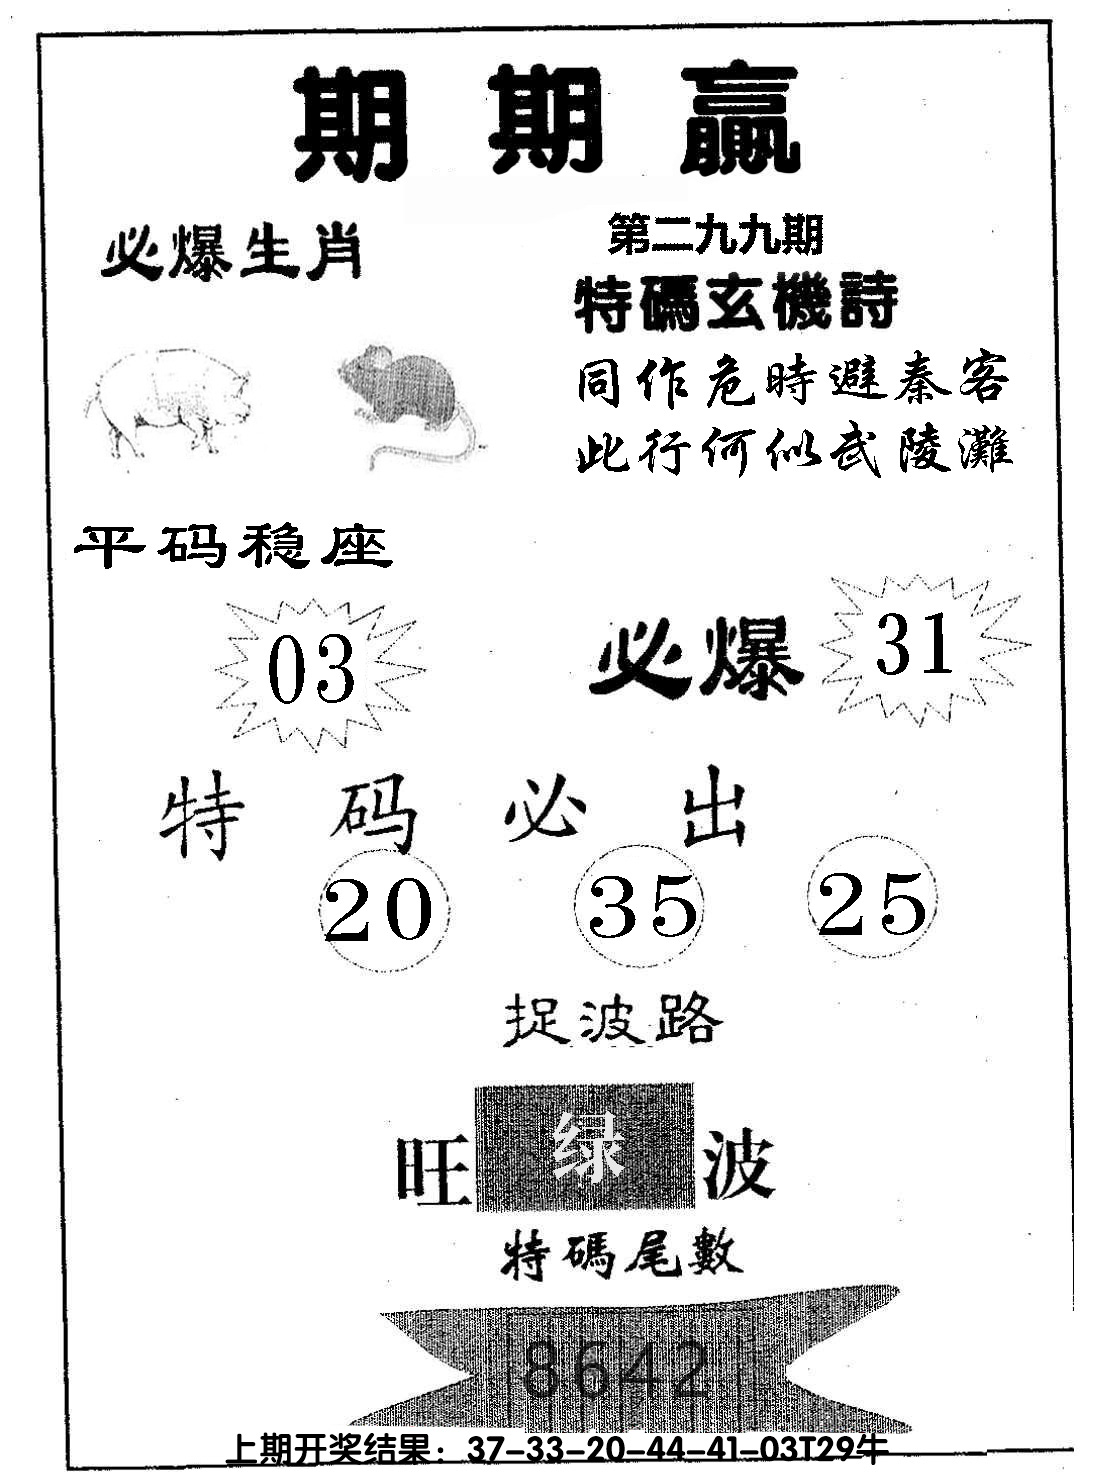 期期赢
必爆生肖
第二九九期
特碼玄機詩
同作危時避秦客
此行何似武陵灘
平码稳座
03
必爆 31
特码必出
20 35 25
捉波路
旺绿波
特碼尾數
8642
上期开奖结果：37-33-20-44-41-03T29牛